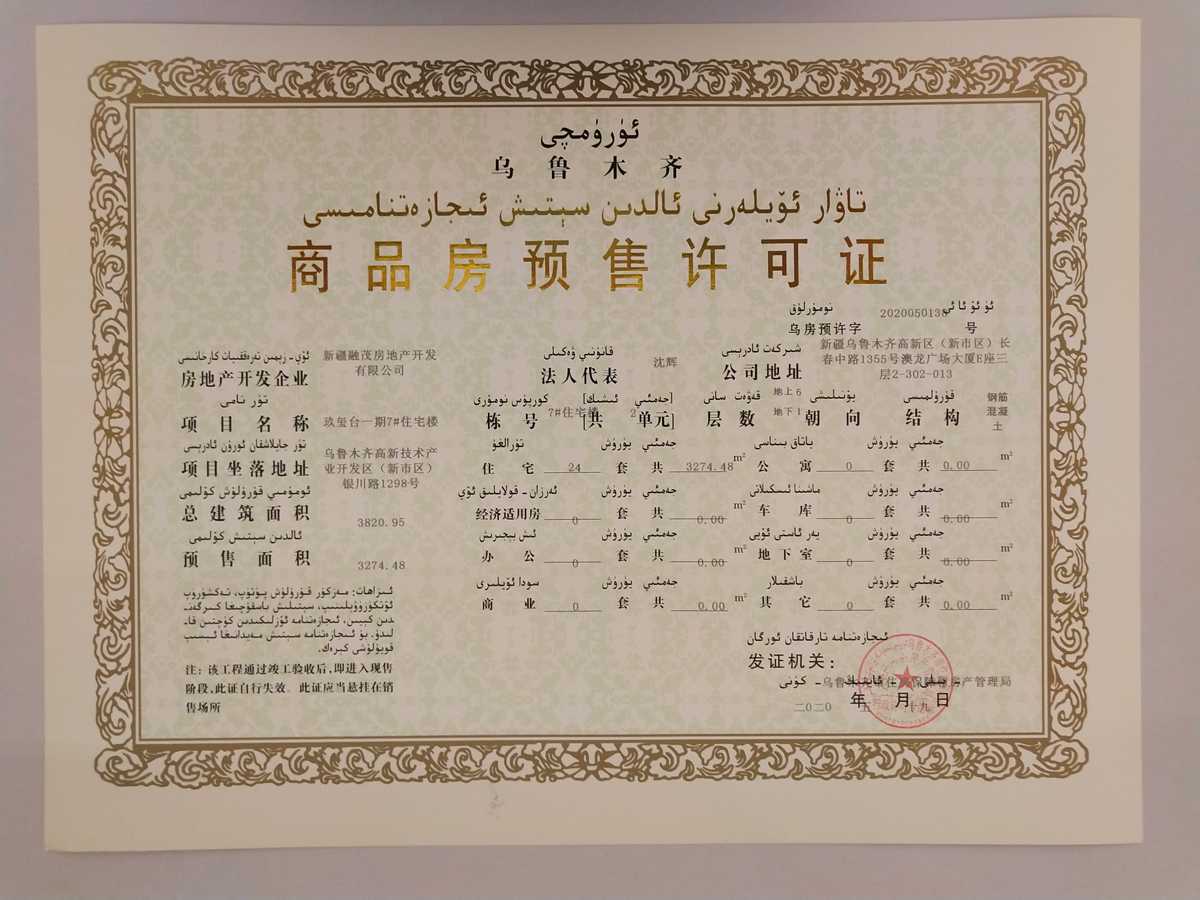 ئۈرۈمچى
乌鲁木齐
تاۋار ئۆيلەرنى ئالدىن سېتىش ئىجازەتنامىسى
商品房预售许可证
نومۇرلۇق 2020050138
乌房预许字 号
ئۆي - زېمىن تەرەققىيات كارخانىسى
房地产开发企业 新疆融茂房地产开发有限公司
قانۇنىي ۋەكىلى
法人代表 沈辉
شىركەت ئادرېسى
公司地址 新疆乌鲁木齐高新区（新市区）长春中路1355号澳龙广场大厦E座三层2-302-013
تۈر نامى
项目名称 玖玺台一期7#住宅楼
كورپۇس نومۇرى [جەمئىي ئىشىك]
栋号 7#住宅楼 [共 2 单元]
قەۋەت سانى
层数 地上6 地下1
يۆنىلىشى
朝向
قۇرۇلمىسى
结构 钢筋混凝土
تۈر جايلاشقان ئورۇن ئادرېسى
项目坐落地址 乌鲁木齐高新技术产业开发区（新市区）银川路1298号
تۇرالغۇ جەمئىي يۈرۈش
住宅 24 套 共 3274.48 m²
باتاق بىناسى جەمئىي يۈرۈش
公寓 0 套 共 0.00 m²
ئومۇمىي قۇرۇلۇش كۆلىمى
总建筑面积 3820.95
ئەرزان - قولايلىق ئۆي جەمئىي يۈرۈش
经济适用房 0 套 共 0.00 m²
ماشىنا ئىسكىلاتى جەمئىي يۈرۈش
车库 0 套 共 0.00 m²
ئالدىن سېتىش كۆلىمى
预售面积 3274.48
ئىش بېجىرىش جەمئىي يۈرۈش
办公 0 套 共 0.00 m²
يەر ئاستى ئۆيى جەمئىي يۈرۈش
地下室 0 套 共 0.00 m²
سودا ئۆيلىرى جەمئىي يۈرۈش
商业 0 套 共 0.00 m²
باشقىلار جەمئىي يۈرۈش
其它 0 套 共 0.00 m²
ئىزاھات: مەزكۇر قۇرۇلۇش پۈتۈپ، تەكشۈرۈپ
ئۆتكۈزۈۋېلىنىپ، سېتىلىش باسقۇچىغا كىرگەن-
دىن كېيىن، ئىجازەتنامە ئۆزلىكىدىن كۈچتىن قا-
لىدۇ. بۇ ئىجازەتنامە سېتىش مەيدانىغا ئېسىپ
قويۇلۇشى كېرەك.
注：该工程通过竣工验收后，即进入现售
阶段，此证自行失效。此证应当悬挂在销
售场所
ئىجازەتنامە تارقاتقان ئورگان
发证机关：
乌鲁木齐市住房保障和房产管理局
二〇二〇 年 五 月 十九 日